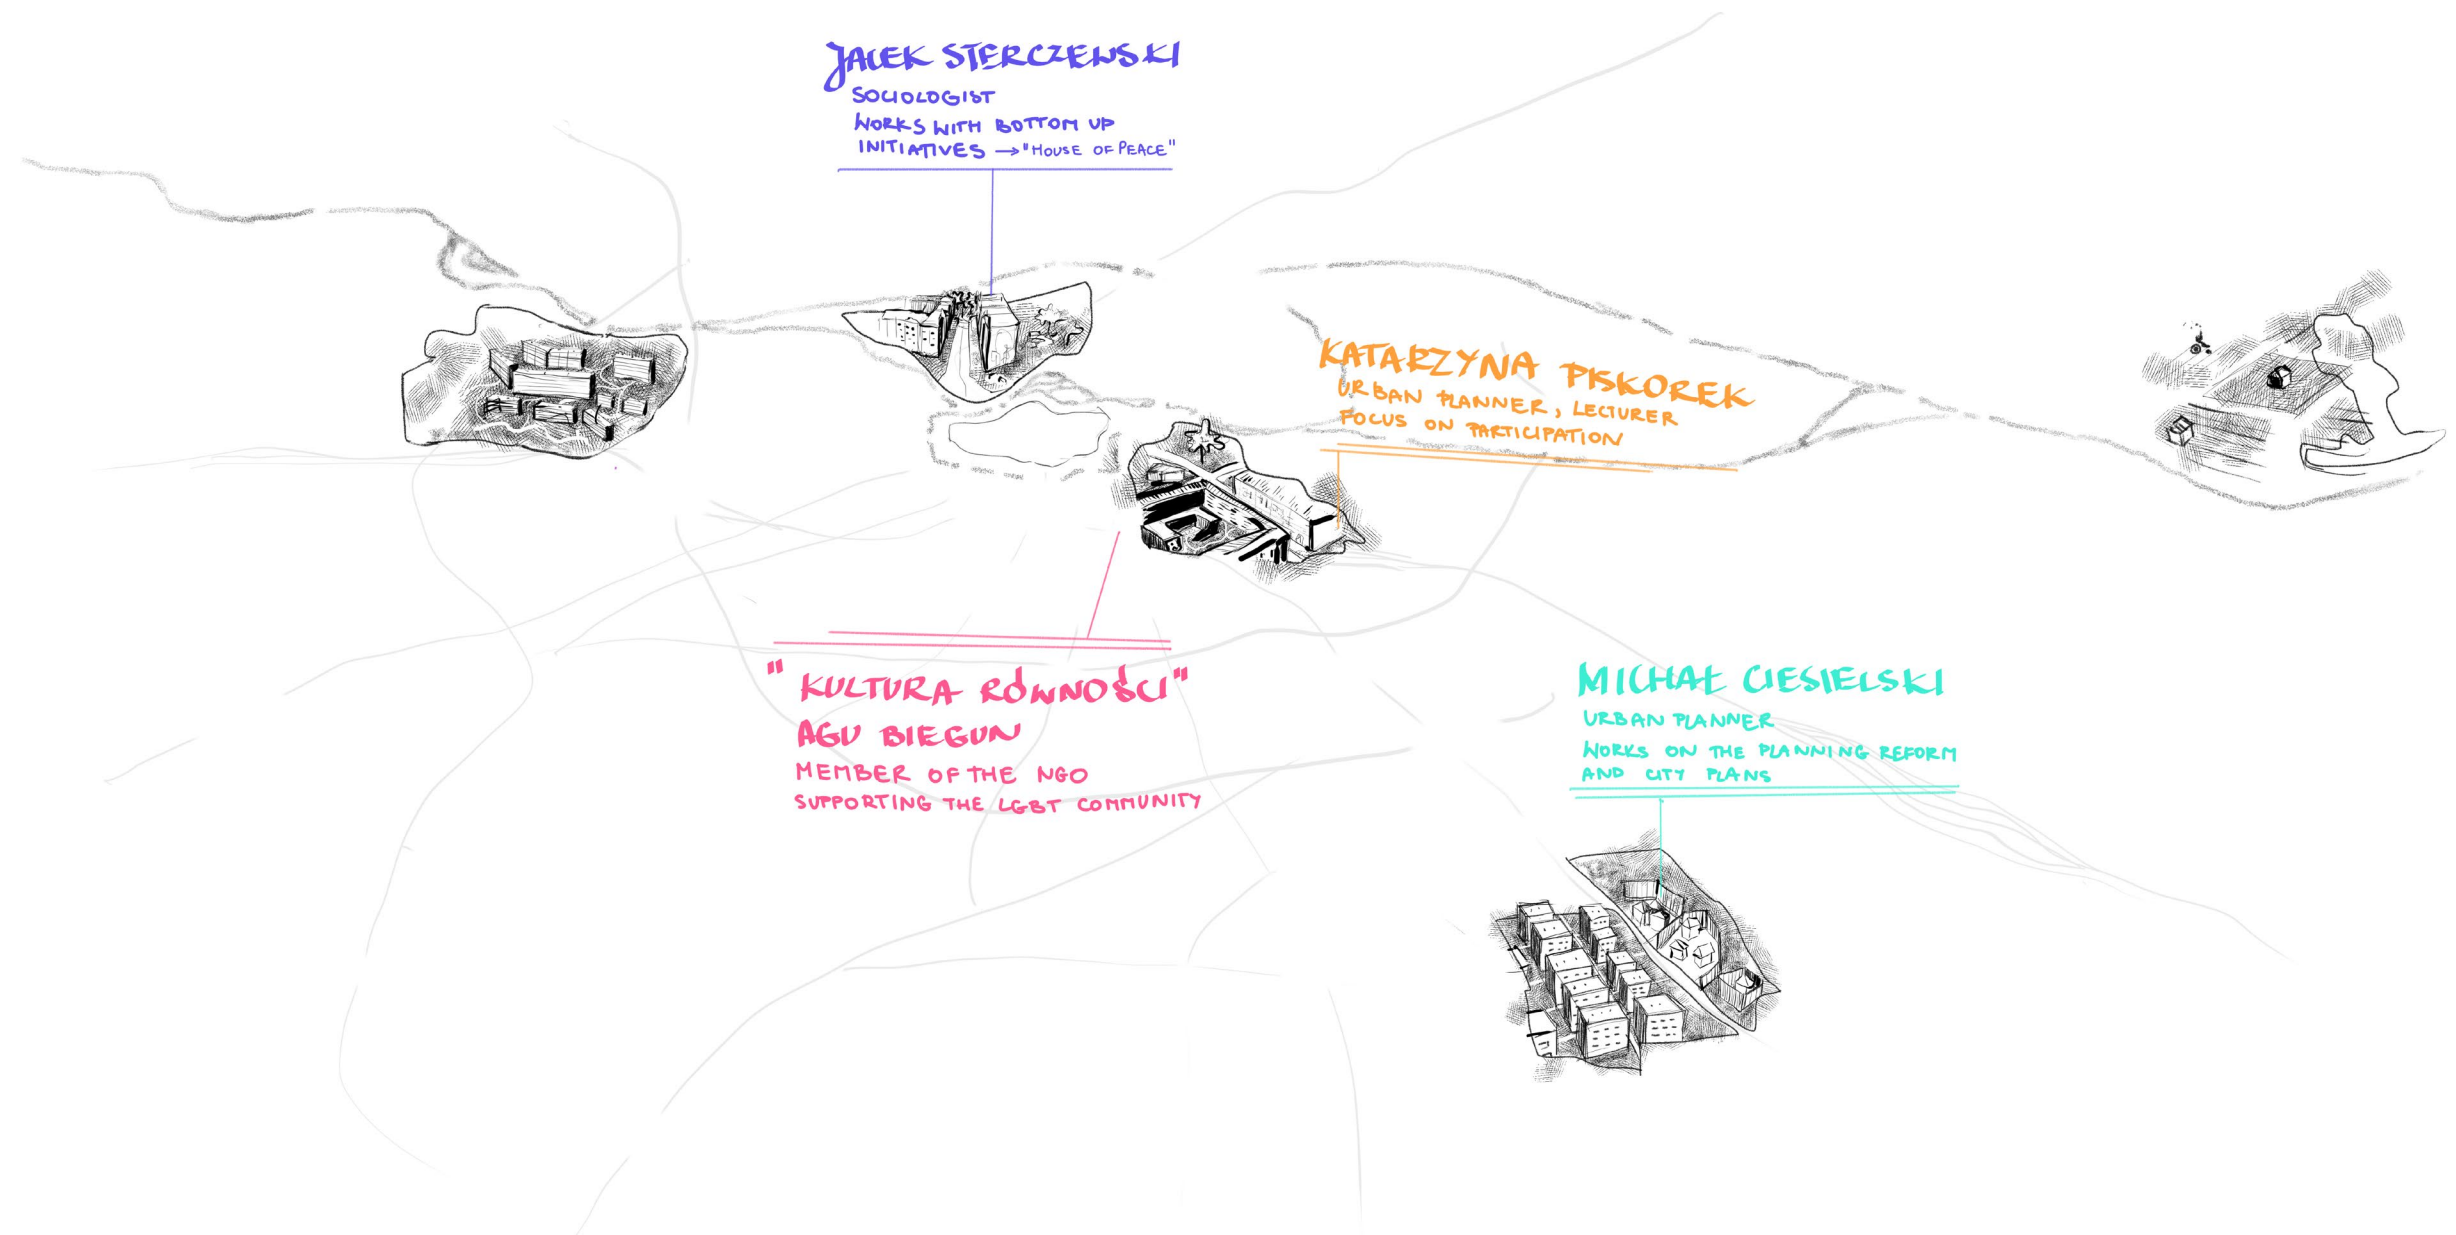 JACEK STERCZEWSKI
SOCIOLOGIST
WORKS WITH BOTTOM UP
INITIATIVES → "HOUSE OF PEACE"
KATARZYNA PISKOREK
URBAN PLANNER, LECTURER
FOCUS ON PARTICIPATION
"KULTURA RÓWNOŚCI"
AGU BIEGUN
MEMBER OF THE NGO
SUPPORTING THE LGBT COMMUNITY
MICHAŁ CIESIELSKI
URBAN PLANNER
WORKS ON THE PLANNING REFORM
AND CITY PLANS